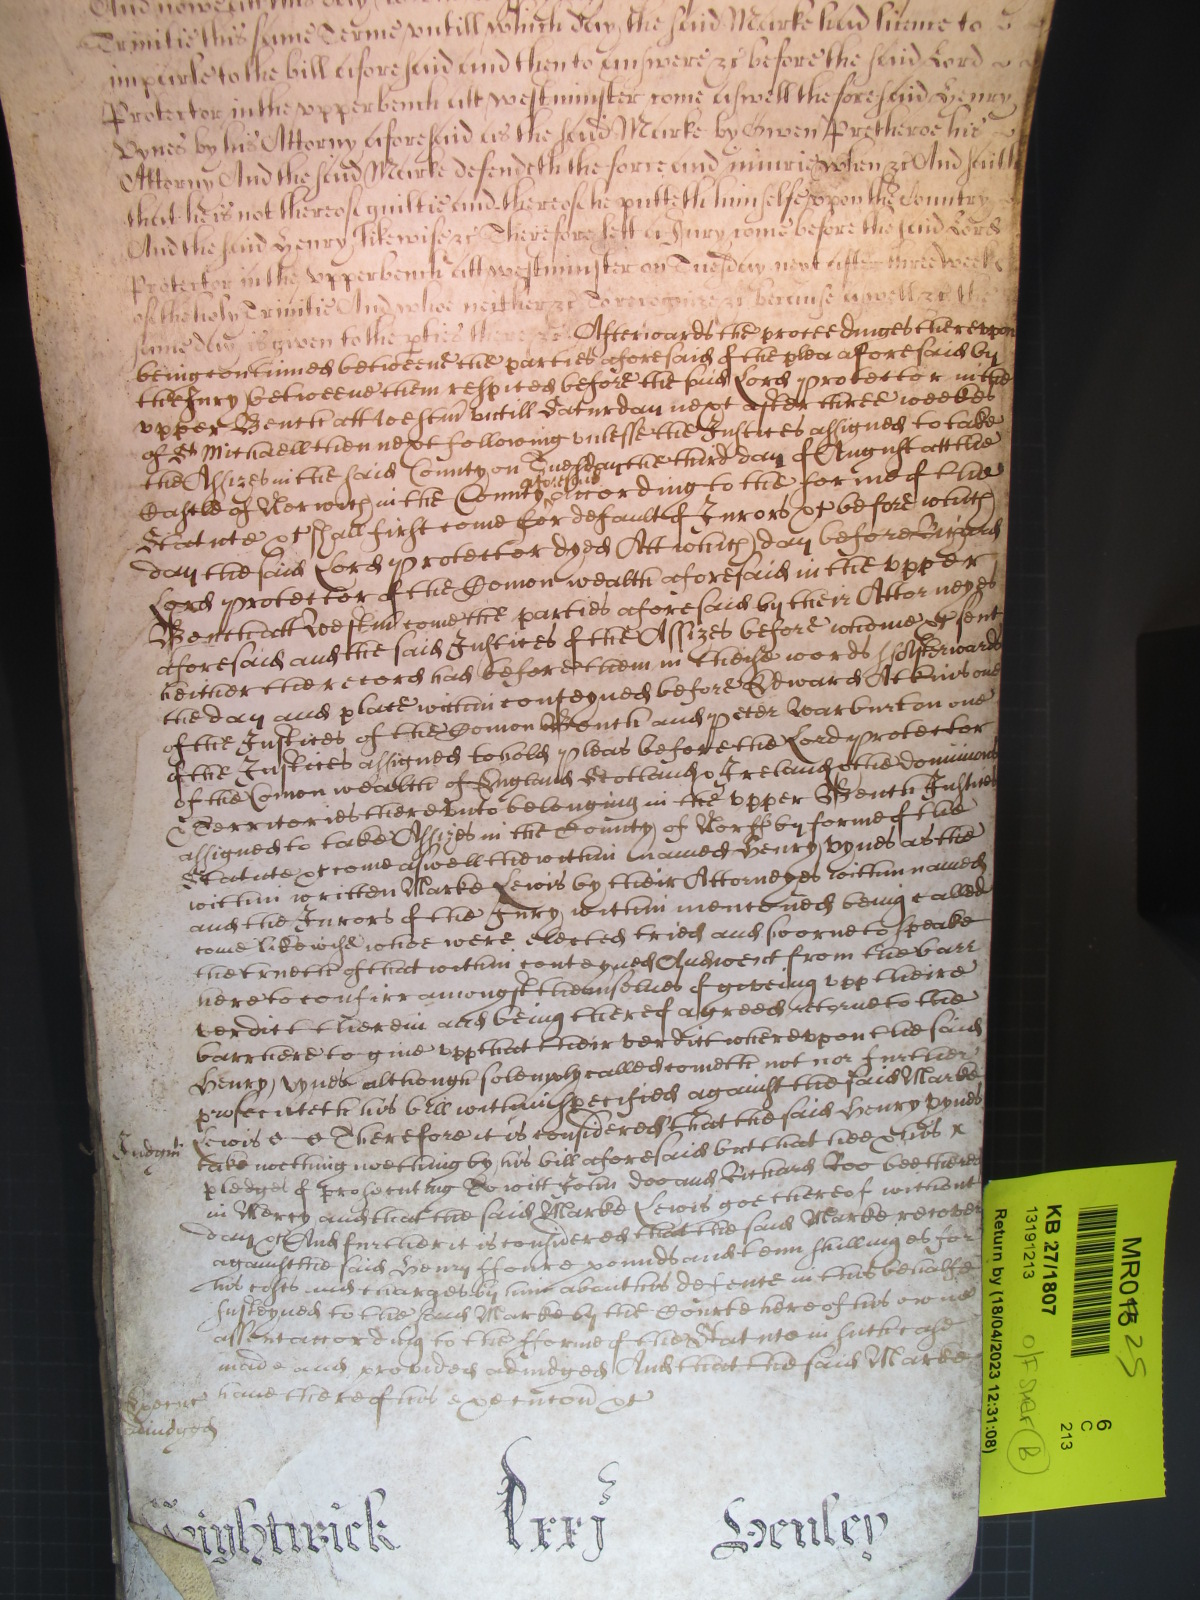 And nowe att this day
Trinitie this same Terme untill which day the said Marke had licence to
imparle to the bill aforesaid and then to answere &c before the said Lord
Protector in the upper bench att Westminster come aswell the foresaid Henry
Vynes by his Attorny aforesaid as the said Marke by Owen Pretheroe his
Attorny And the said Marke defendeth the force and iniurie when &c And saith
that he is not thereof guiltie and thereof he putteth himselfe upon the Country
And the said Henry likewise &c Therefore lett a Jury come before the said Lord
Protector in the upper bench att Westminster on Tuesday next after three weeks
of the holy Trinitie And whoe neither &c To recognize &c because aswell &c the
same day is given to the pties there &c Afterwards the proceedinges thereupon
being continued betweene the parties aforesaid of the plea aforesaid by
the Jury betweene them respited before the said Lord Protector in the
upper Bench att Westm untill Saturday next after three weekes
of St Michaell then next following unlesse the Justices assigned to take
the Assizes in the said County on Tuesday the third day of August att the
Castle of Norwich in the County aforesaid According to the forme of the
Statute &c shall first come for default of Jurors &c before which
day the said Lord Protector dyed Att which day before Richard
Lord Protector of the Comon wealth aforesaid in the upper
Bench att Westm come the parties aforesaid by their Attorneyes
aforesaid and the said Justices of the Assizes before whome &c sent
hether the record had before them in theise words scz Afterwards
the day and place within conteyned before Edward Atkins one
of the Justices of the Comon Bench and Peter Warburton one
of the Justices assigned to hold pleas before the Lord Protector
of the Comon wealth of England Scotland & Ireland & the dominions
& Territories thereunto belonging in the upper Bench Justices
assigned to take Assizes in the County of Norff by forme of the
Statute &c come aswell the within named Henry Vynes as the
within written Marke Lewis by their Attorneyes within named
and the Jurors of the Jury within mentioned being called
come likewise whoe were elected tried and sworne to speake
the trueth of that within conteyned And went from the barr
here to conferr amongst themselves of giveing upp theire
verdict therein and being thereof agreed returne to the
barr here to give upp that their verdict whereupon the said
Henry Vynes although solemnly called cometh not nor further
prosecuteth his bill within specified against the said Marke
Judgmt Lewis Therefore it is considered that the said Henry Vynes
take noething noething by his bill aforesaid but that hee & his
pledges of prosecuting To witt John Doo and Richard Roo bee there
in Mercy and that the said Marke Lewis goe thereof without
day &c And further it is considered that the said Marke recover
against the said Henry ffoure pounds and tenn shillinges for
his costs and charges by him about his defence in this behalfe
susteyned to the said Marke by the Courte here of his owne
assent according to the fforme of the Statute in such case
made and provided adiudged And that the said Marke
have thereof his execucon &c
Wightwick lxxj Henley
MR018 25
6
C
213
KB 27/1807
13191213
Return by (18/04/2023 12:31:08)